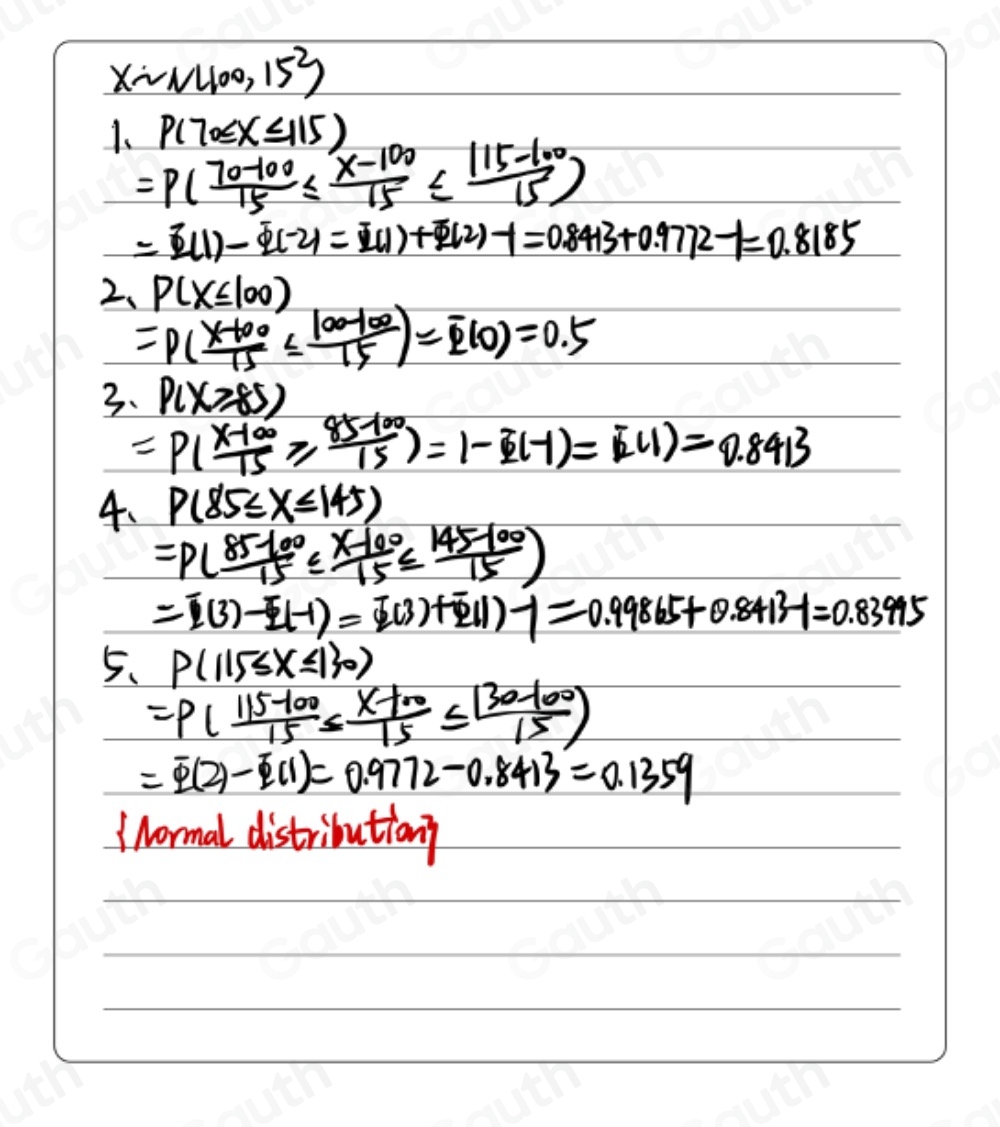 X~N(100, 15²)
1、P(70≤X≤115)
=P((70-100)/15 ≤ (X-100)/15 ≤ (115-100)/15)
=Φ(1)-Φ(-2)=Φ(1)+Φ(2)-1=0.8413+0.9772-1=0.8185
2、P(X≤100)
=P((X-100)/15 ≤ (100-100)/15)=Φ(0)=0.5
3、P(X≥85)
=P((X-100)/15 ≥ (85-100)/15)=1-Φ(-1)=Φ(1)=0.8413
4、P(85≤X≤145)
=P((85-100)/15 ≤ (X-100)/15 ≤ (145-100)/15)
=Φ(3)-Φ(-1)=Φ(3)+Φ(1)-1=0.99865+0.8413-1=0.83995
5、P(115≤X≤130)
=P((115-100)/15 ≤ (X-100)/15 ≤ (130-100)/15)
=Φ(2)-Φ(1)=0.9772-0.8413=0.1359
{Normal distribution}